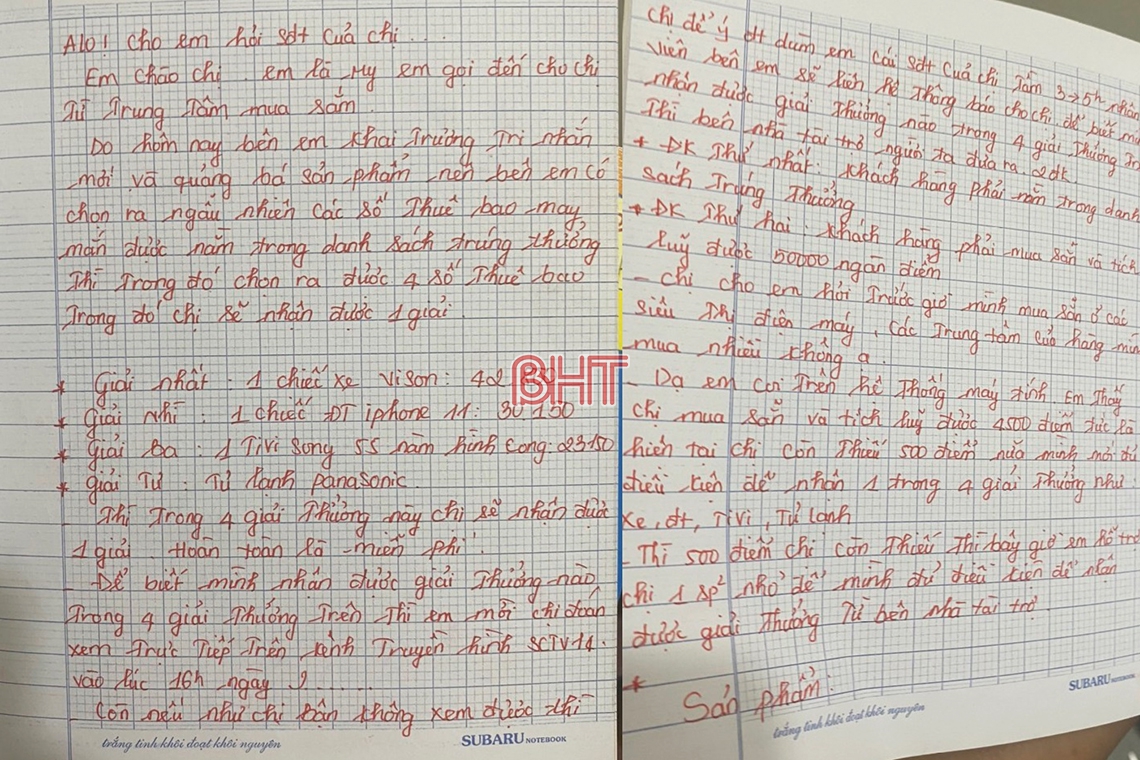 Alo! cho em hỏi sđt của chị....
Em chào chị em là My em gọi đến cho chị
Từ Trung Tâm mua sắm.
Do hôm nay bên em khai Trương Tri nhân
mới và quảng bá sản phẩm nên bên em có
chọn ra ngẫu nhiên các số Thuê bao may
mắn được nằm trong danh sách trúng thưởng
Thì Trong đó chọn ra được 4 số Thuê bao
Trong đó chị sẽ nhận được 1 giải.
* Giải nhất: 1 chiếc xe vison: 42
* Giải nhì: 1 chiếc ĐT iphone 11: 30 150
* Giải ba: 1 Tivi song 55 năm hình cong: 23.150
* Giải Tư: Tủ lạnh panasonic
Thì Trong 4 giải Thưởng này chị sẽ nhận được
1 giải Hoàn toàn là miễn phí.
Để biết mình nhận được giải Thưởng nào
Trong 4 giải Thưởng Trên Thì em mời chị đoán
xem Trực Tiếp Trên kênh Truyền hình SCTV14.
vào lúc 16h ngày
Còn nếu như chị bận không xem được thì
trắng tinh khôi đoạt khôi nguyên
SUBARU NOTEBOOK
BHT
chị để ý đt dùm em cái sđt của chị Tầm 3→5h nhân
viên bên em sẽ liên hệ Thông báo cho chị để biết
nhận được giải Thưởng nào trong 4 giải Thưởng
Thì bên nhà tài trợ người ta đưa ra 2đk
+ ĐK Thứ nhất: khách hàng phải nằm trong danh
sách Trúng Thưởng
+ ĐK Thứ hai: khách hàng phải mua sắn và tích
luỹ được 50000 ngàn điểm
- chị cho em hỏi Trước giờ mình mua sắn ở các
siêu Thị điện máy, các Trung tâm của hàng
mua nhiều không ạ.
- Dạ em coi Trên hệ Thống máy tính. Em Thấy
chị mua sắn và tích luỹ được 4500 điểm tức là
hiện tại chị còn Thiếu 500 điểm nữa mình mới đủ
điều kiện để nhận 1 trong 4 giải Thưởng như:
xe, đt, Tivi, Tủ lạnh
- Thì 500 điểm chị còn Thiếu Thì bây giờ em hỗ trợ
chị 1 sp² nhỏ để mình đủ điều kiện để nhận
được giải Thưởng Từ bên nhà tài trợ.
* Sản phẩm:
trắng tinh khôi đoạt khôi nguyên
SUBARU NOTEBOOK